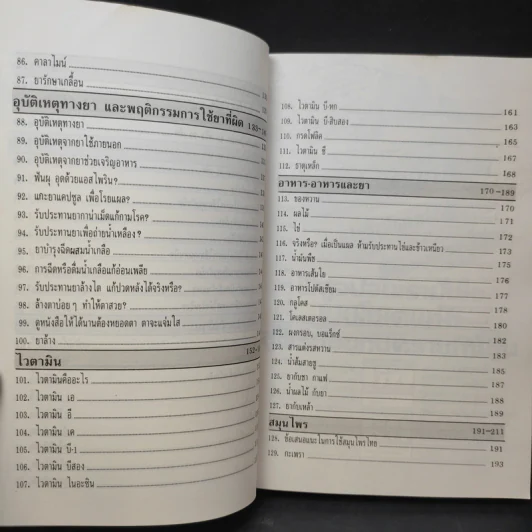 86. คาลาไมน์
87. ยารักษาเกลื้อน
อุบัติเหตุทางยา และพฤติกรรมการใช้ยาที่ผิด
88. อุบัติเหตุทางยา
89. อุบัติเหตุจากยาใช้ภายนอก
90. อุบัติเหตุจากยาช่วยเจริญอาหาร
91. ฟันผุ อุดด้วยแอสไพริน?
92. แกะยาแคปซูล เพื่อโรยแผล?
93. รับประทานยากาน่าเม็ดแก้กามโรค?
94. รับประทานยาเพื่อถ่ายน้ำเหลือง?
95. ยาบำรุงฉีดผสมน้ำเกลือ
96. การฉีดหรือดื่มน้ำเกลือแก้อ่อนเพลีย
97. รับประทานยาล้างไต แก้ปวดหลังได้จริงหรือ?
98. ล้างตาบ่อยๆ ทำให้ตาสวย?
99. ดูหนังสือให้ได้นานต้องหยอดตา ตาจะแจ่มใส
100. ยาล้าง
ไวตามิน
101. ไวตามินคืออะไร
102. ไวตามิน เอ
103. ไวตามิน อี
104. ไวตามิน เค
105. ไวตามิน บี-1
106. ไวตามิน บีสอง
107. ไวตามิน ไนอะซิน
108. ไวตามิน บี-หก 161
109. ไวตามิน บี-สิบสอง 163
110. กรดโฟลิค 165
111. ไวตามิน ซี 167
112. ธาตุเหล็ก 168
อาหาร-อาหารและยา 170-189
113. ของหวาน 170
114. ผลไม้ 171
115. ไข่ 172
116. จริงหรือ? เมื่อเป็นแผล ห้ามรับประทานไข่และข้าวเหนียว 173
117. น้ำมันพืช 175
118. อาหารเส้นใย 176
119. อาหารโปตัสเซียม 177
120. กลูโคส 178
121. โคเลสเตอรอล 180
122. ผงกรอบ, บอแร็กซ์ 182
123. สารแต่งรสหวาน 183
124. น้ำส้มสายชู 185
125. ยากับชา กาแฟ 185
126. น้ำผลไม้ กับยา 187
127. ยากับเหล้า 189
สมุนไพร 191-211
128. ข้อเสนอแนะในการใช้สมุนไพรไทย 191
129. กะเพรา 193